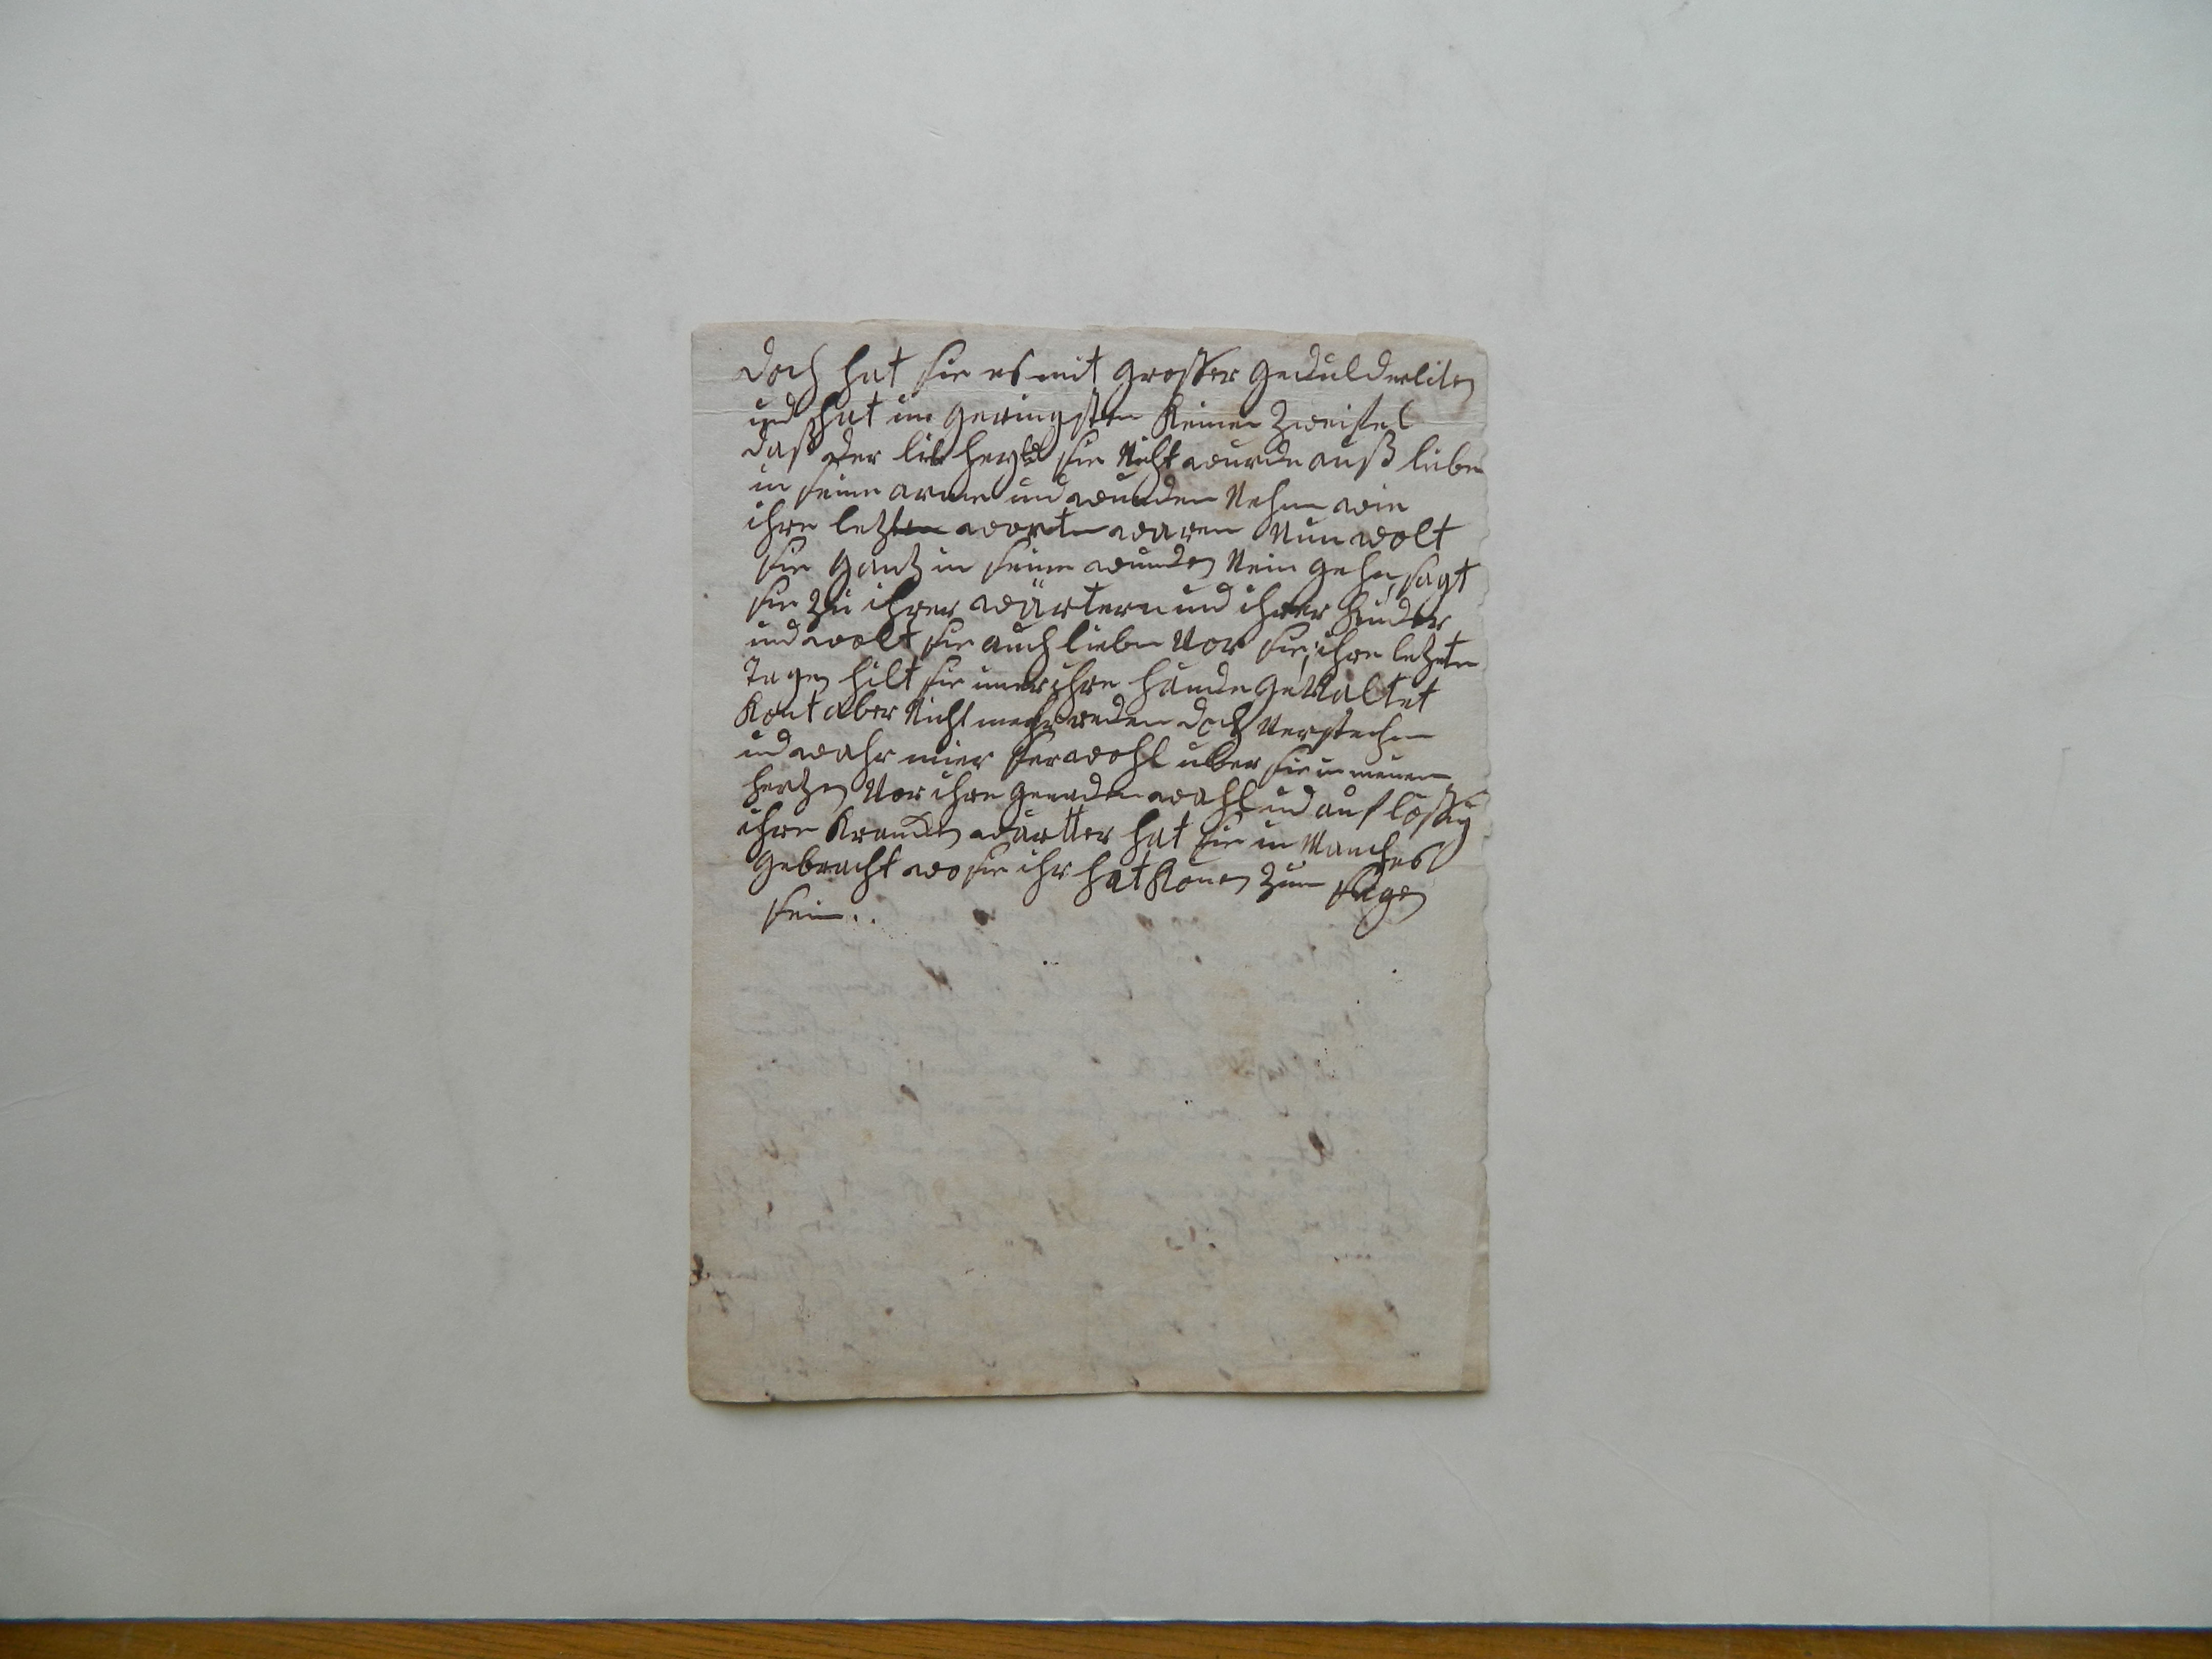 doch hat sie es mit grosser gedulderliten
und hat im geringsten keinen zweifel
daß der lib heyld sie nicht wurde auß liebe
in seine arme und wunden nehmen wie
ihre letzten worte waren nun wolt
sie gantz in seine wunden nein gehen, sagt
sie zu ihrer wärtern und ihrer kinder
und wolt sie auch lieben vor sie, ihre letzten
tagen hilt sie imer ihre hände gevaltet
kont aber nicht mehr reden doch verstehen
und wahr mier ser wohl uber sie in meinem
hertzen vor ihre genaden wahl und auf lösung
ihre krancken wärtter hat sie in manches
gebracht wo sie ihr hat können zum segen
sein..